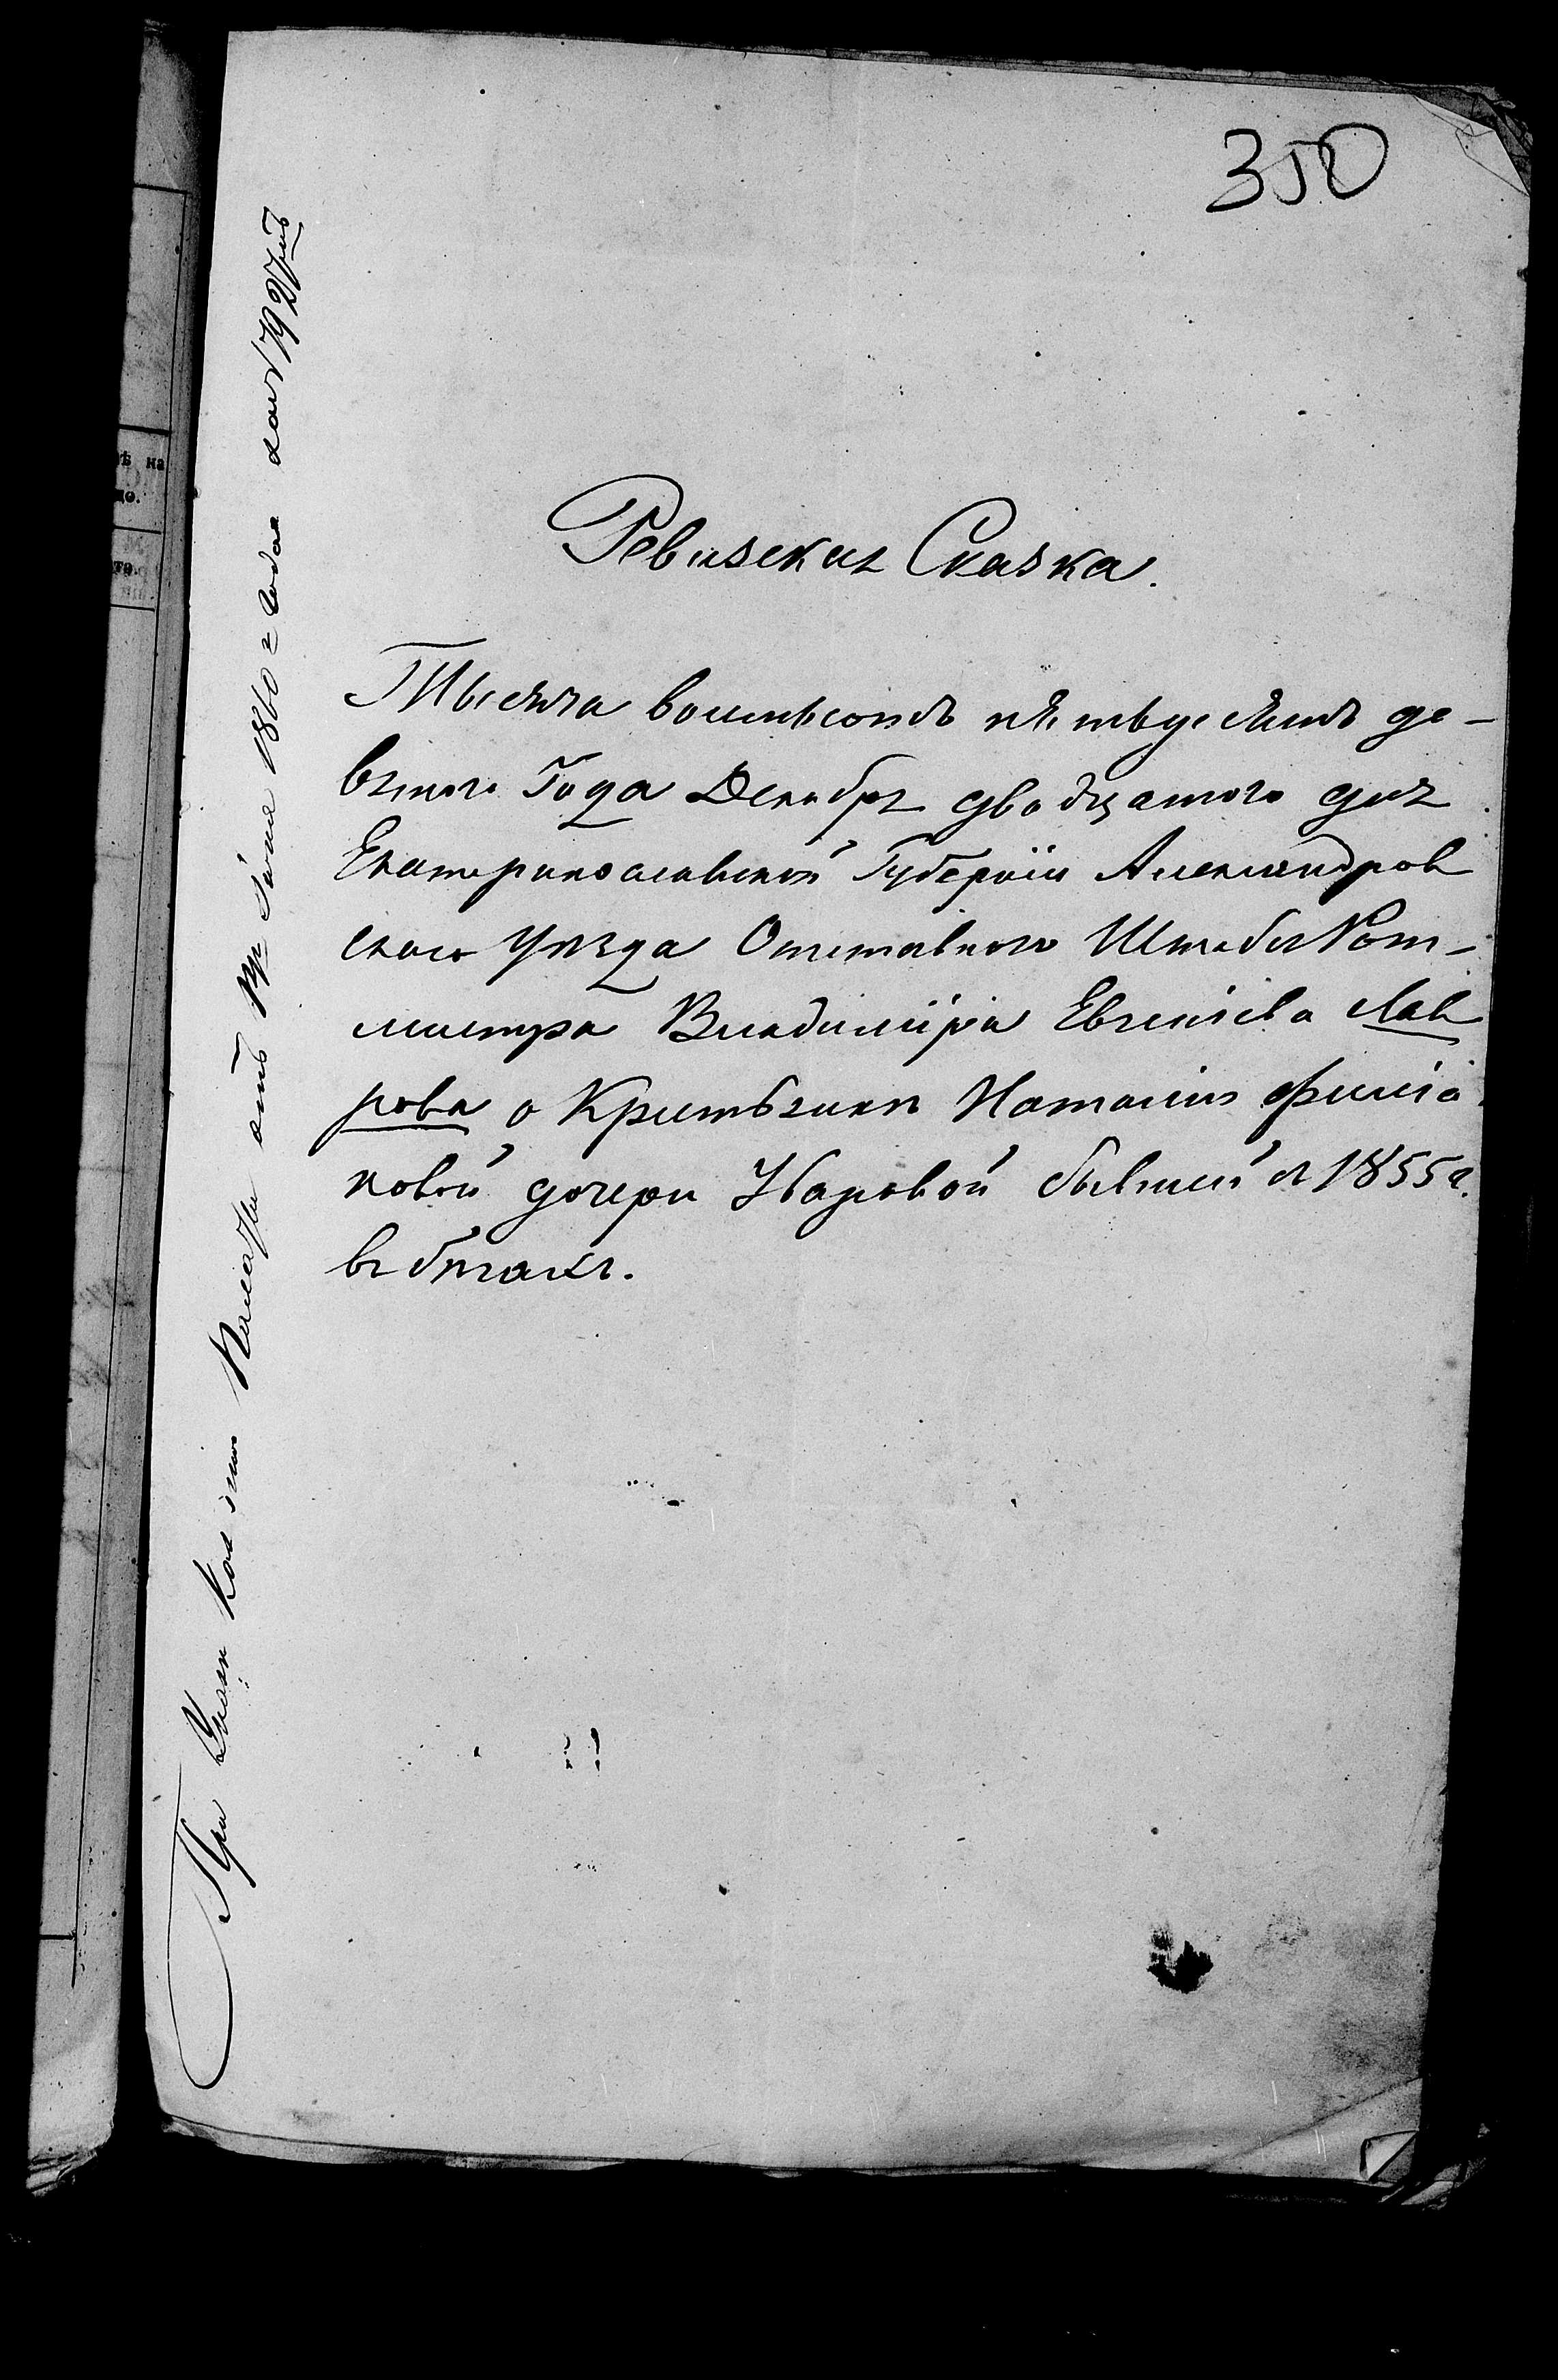 350
Ревизская Сказка.
Тысяча восемьсотъ пятьдесятъ де-
вятого Года Декабря двадцатого дня
Екатеринославской Губерніи Александров
ского уѣзда Отставного Штабсъ Рот-
мистра Владиміра Евгеніева Лав
рова о Крестьянкѣ Наталіи
новой дочери бывшей съ 1855 г.
въ бѣгахъ.
При Указѣ Казенной Палаты отъ 1860 г. года за № 7927